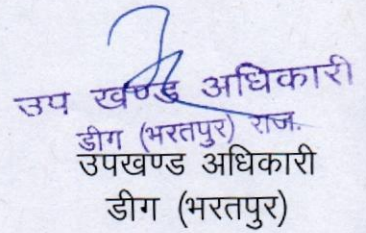 उप खण्ड अधिकारी
डीग (भरतपुर) राज.
उपखण्ड अधिकारी
डीग (भरतपुर)